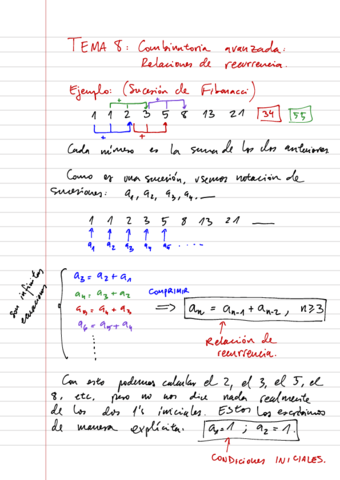 TEMA 8: Combinatoria avanzada:
Relaciones de recurrencia.
Ejemplo: (Sucesión de Fibonacci)
+
1 1 2 3 5 8 13 21 34 55
+
Cada número es la suma de los dos anteriores
Como es una sucesión, usemos notación de
sucesiones: a₁, a₂, a₃, a₄. __
1 1 2 3 5 8 13 21 __
a₁ a₂ a₃ a₄ a₅ ....
Son infinitas
ecuaciones
a₃ = a₂ + a₁
a₄ = a₃ + a₂
a₅ = a₄ + a₃
a₆ = a₅ + a₄
COMPRIMIR
⟹ aₙ = aₙ₋₁ + aₙ₋₂, n≥3
Relación de
recurrencia.
Con esto podemos calcular el 2, el 3, el 5, el
8, etc, pero no nos dice nada realmente
de los dos 1's iniciales. Estos los escribimos
de manera explícita. a₁=1 ; a₂=1.
CONDICIONES INICIALES.